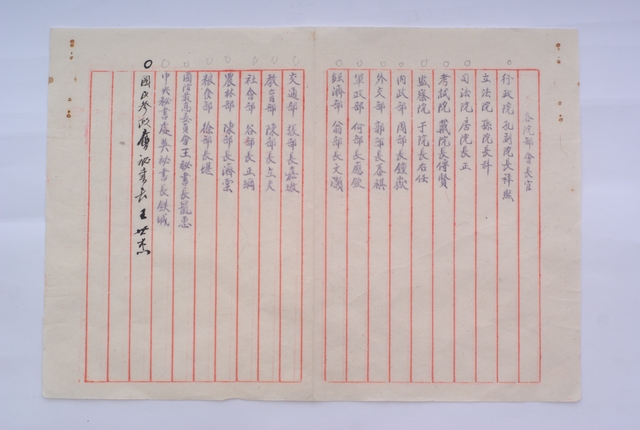 各院部会長官
行政院孔副院長祥熙
立法院孫院長科
司法院居院長正
考試院戴院長傅賢
監察院于院長右任
内政部周部長鍾嶽
外交部郭部長泰祺
軍政部何部長應欽
經濟部翁部長文灝
交通部張部長嘉璈
教育部陳部長立夫
社會部谷部長正綱
農林部陳部長濟棠
粮食部徐部長堪
國防最高委員會王秘書長寵惠
中央秘書處吳秘書長鉄城
國民參政會秘書長王世杰